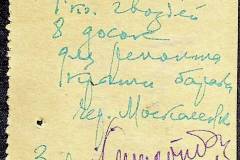 1 кг. гвоздей
8 досок
для ремонта
крыши барака
Чер. Москалевой